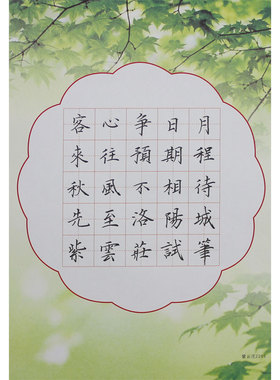 客心爭日月
來往預期程
秋風不相待
先至洛陽城
紫雲莊試筆